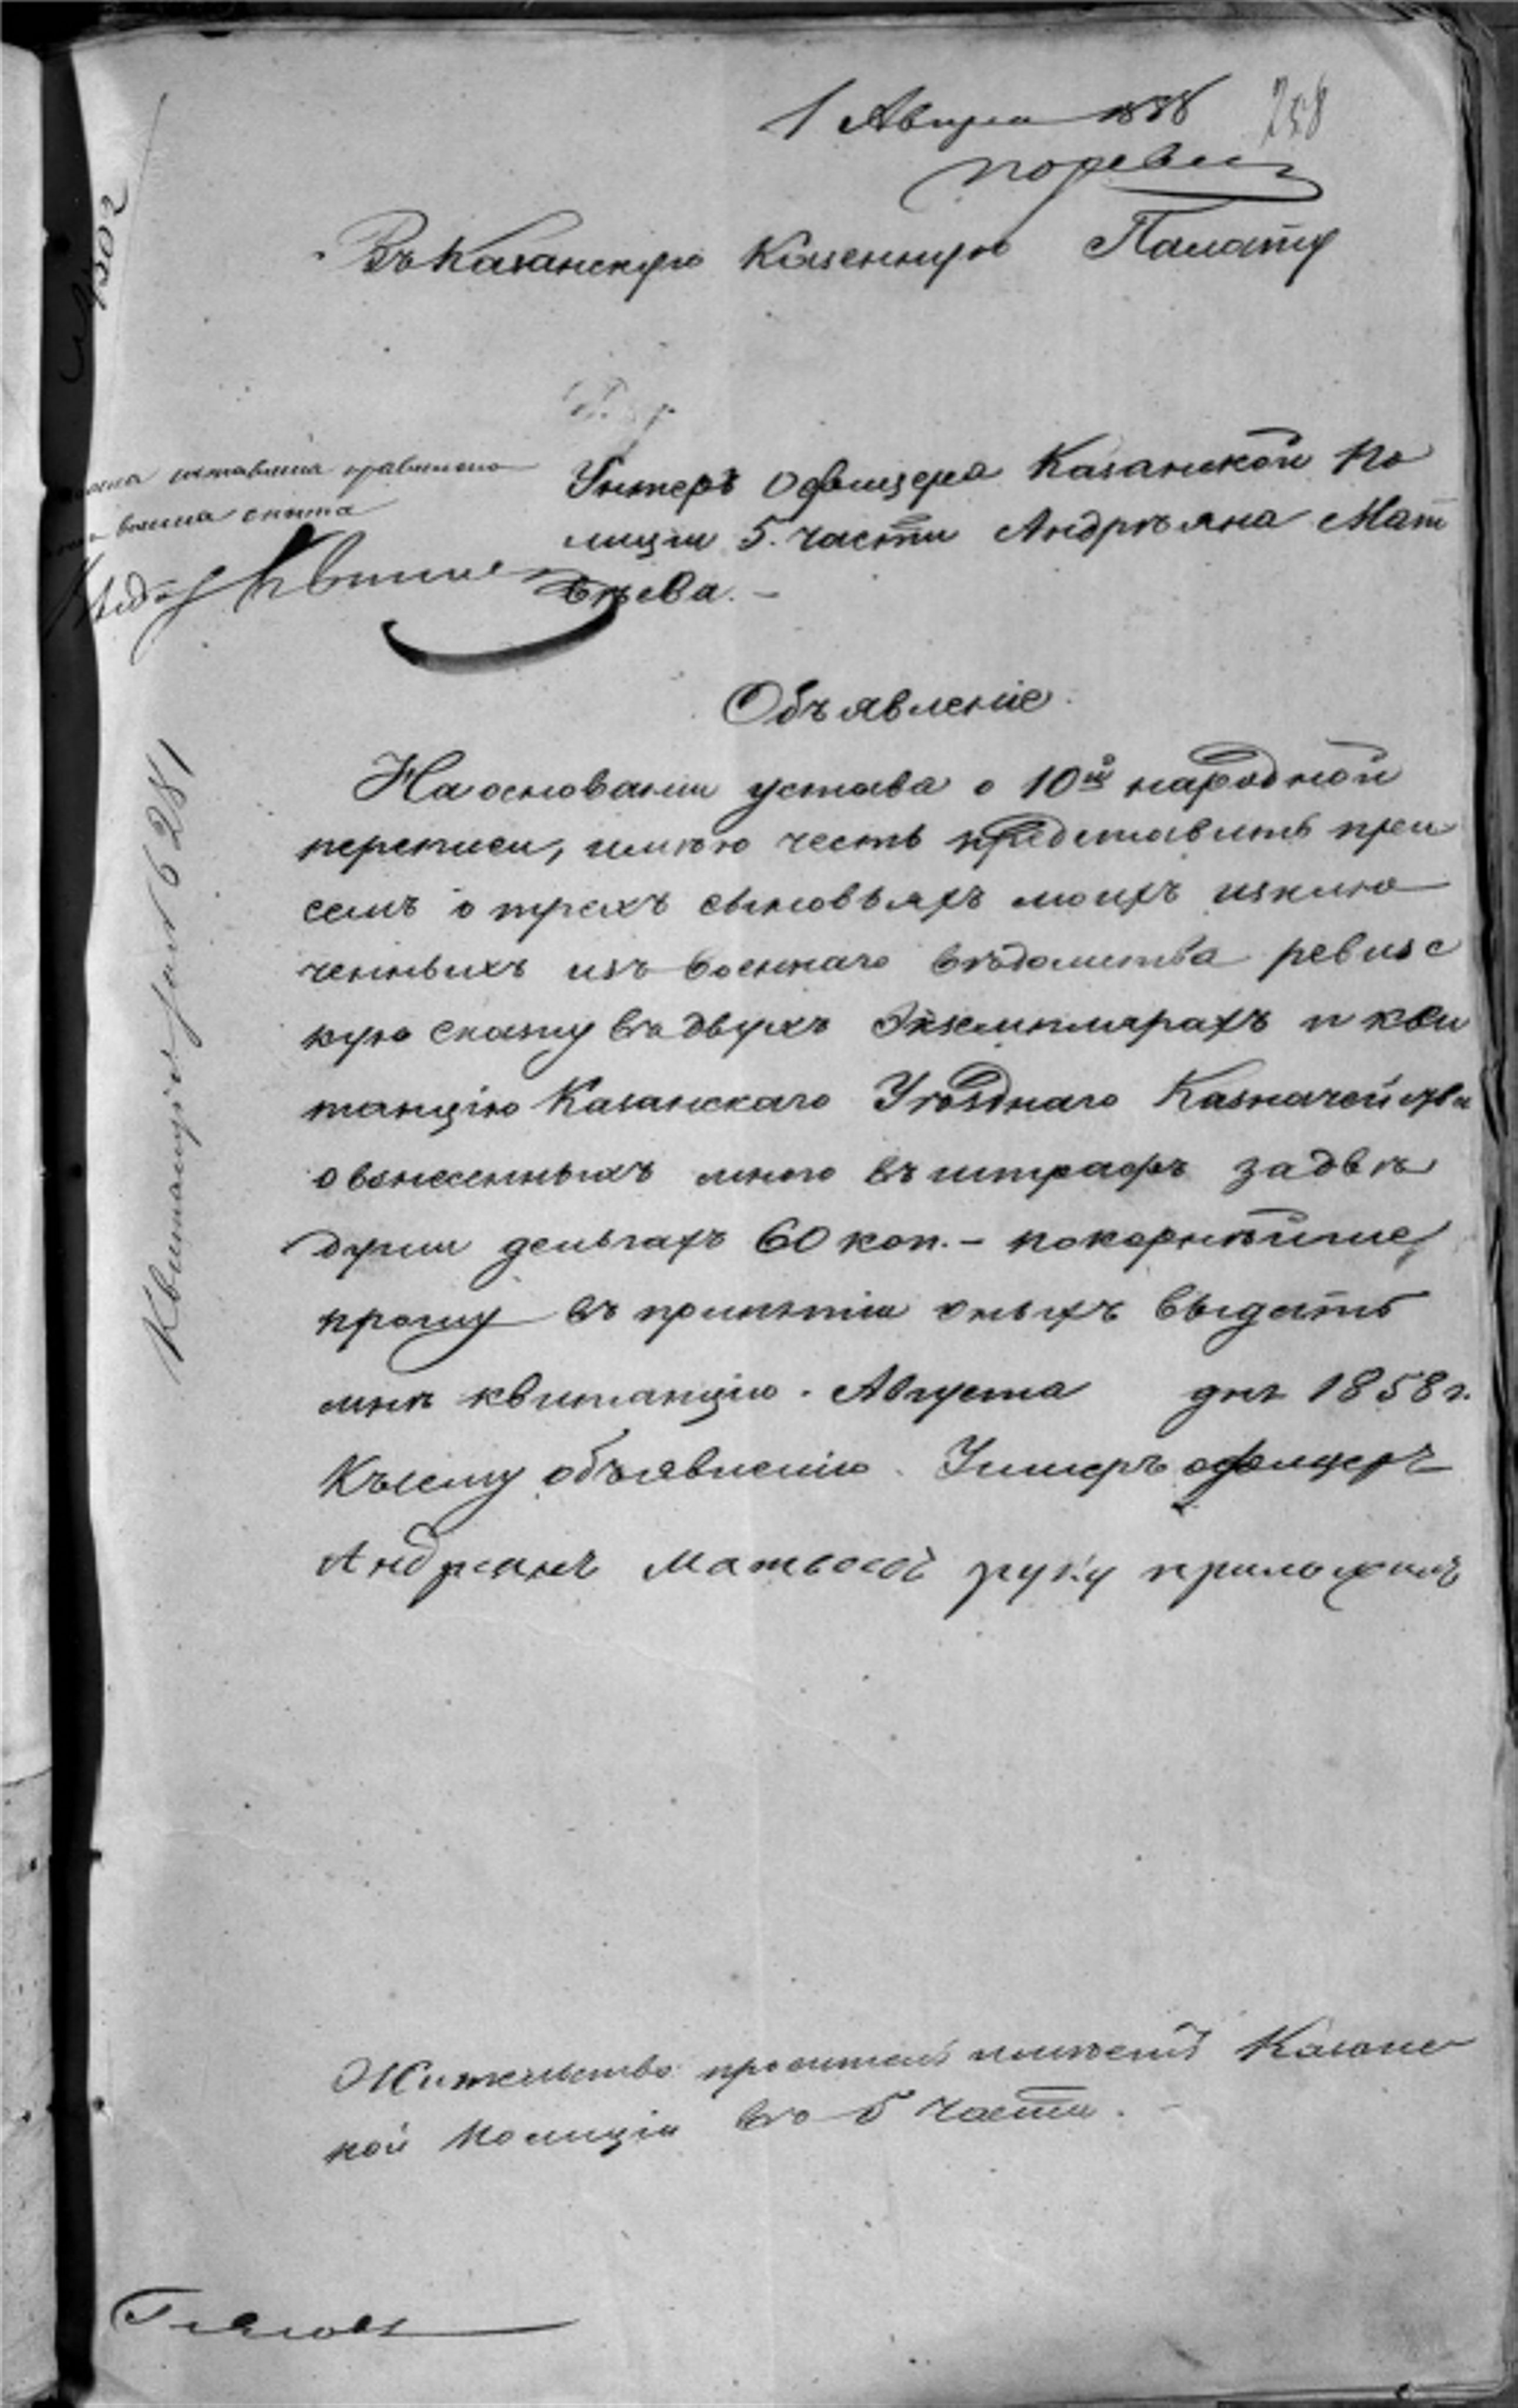 1 Августа 1858
758
Въ Казанскую Казенную Палату
Унтеръ Офицера Казанской По
лиціи 5. части Андрѣяна Мат
вѣева. –
Объявленіе.
На основаніи устава о 10й народной
переписи, имѣю честь представить при
семъ о трехъ сыновьяхъ моихъ исклю
ченныхъ изъ военнаго вѣдомства ревизс
кую сказку въ двухъ Экземплярахъ и кви
танцію Казанскаго Уѣзднаго Казначейства
о взнесенныхъ мною въ штрафъ за двѣ
души деньгахъ 60 коп. – покорнѣйше
прошу въ принятіи оныхъ выдать
мнѣ квитанцію. Августа дня 1858 г.
Къ сему объявленію Унтеръ офицеръ
Андреянъ Матвеевъ руку приложилъ
Жительство проситель имѣетъ Казанс
кой Полиціи въ 5 части.
Квитанція 6281
1302